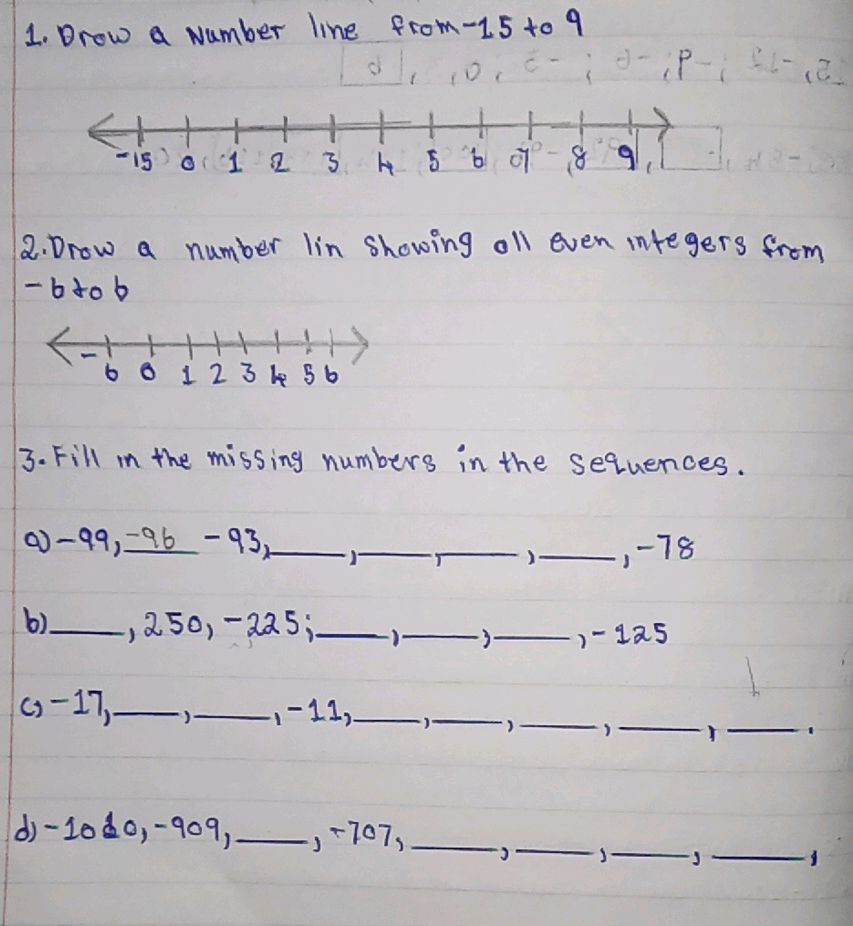 1. Drow a Number line from -15 to 9
-15 0 1 2 3 4 5 6 7 8 9
2. Drow a number lin showing all even integers from
-6 to 6
-6 0 1 2 3 4 5 6
3. Fill in the missing numbers in the sequences.
a) -99, -96 -93, ___, ___, ___, ___, -78
b) ___, 250, -225; ___, ___, ___, -125
c) -17, ___, ___, -11, ___, ___, ___, ___, ___.
d) -1010, -909, ___, -707, ___, ___, ___, ___,